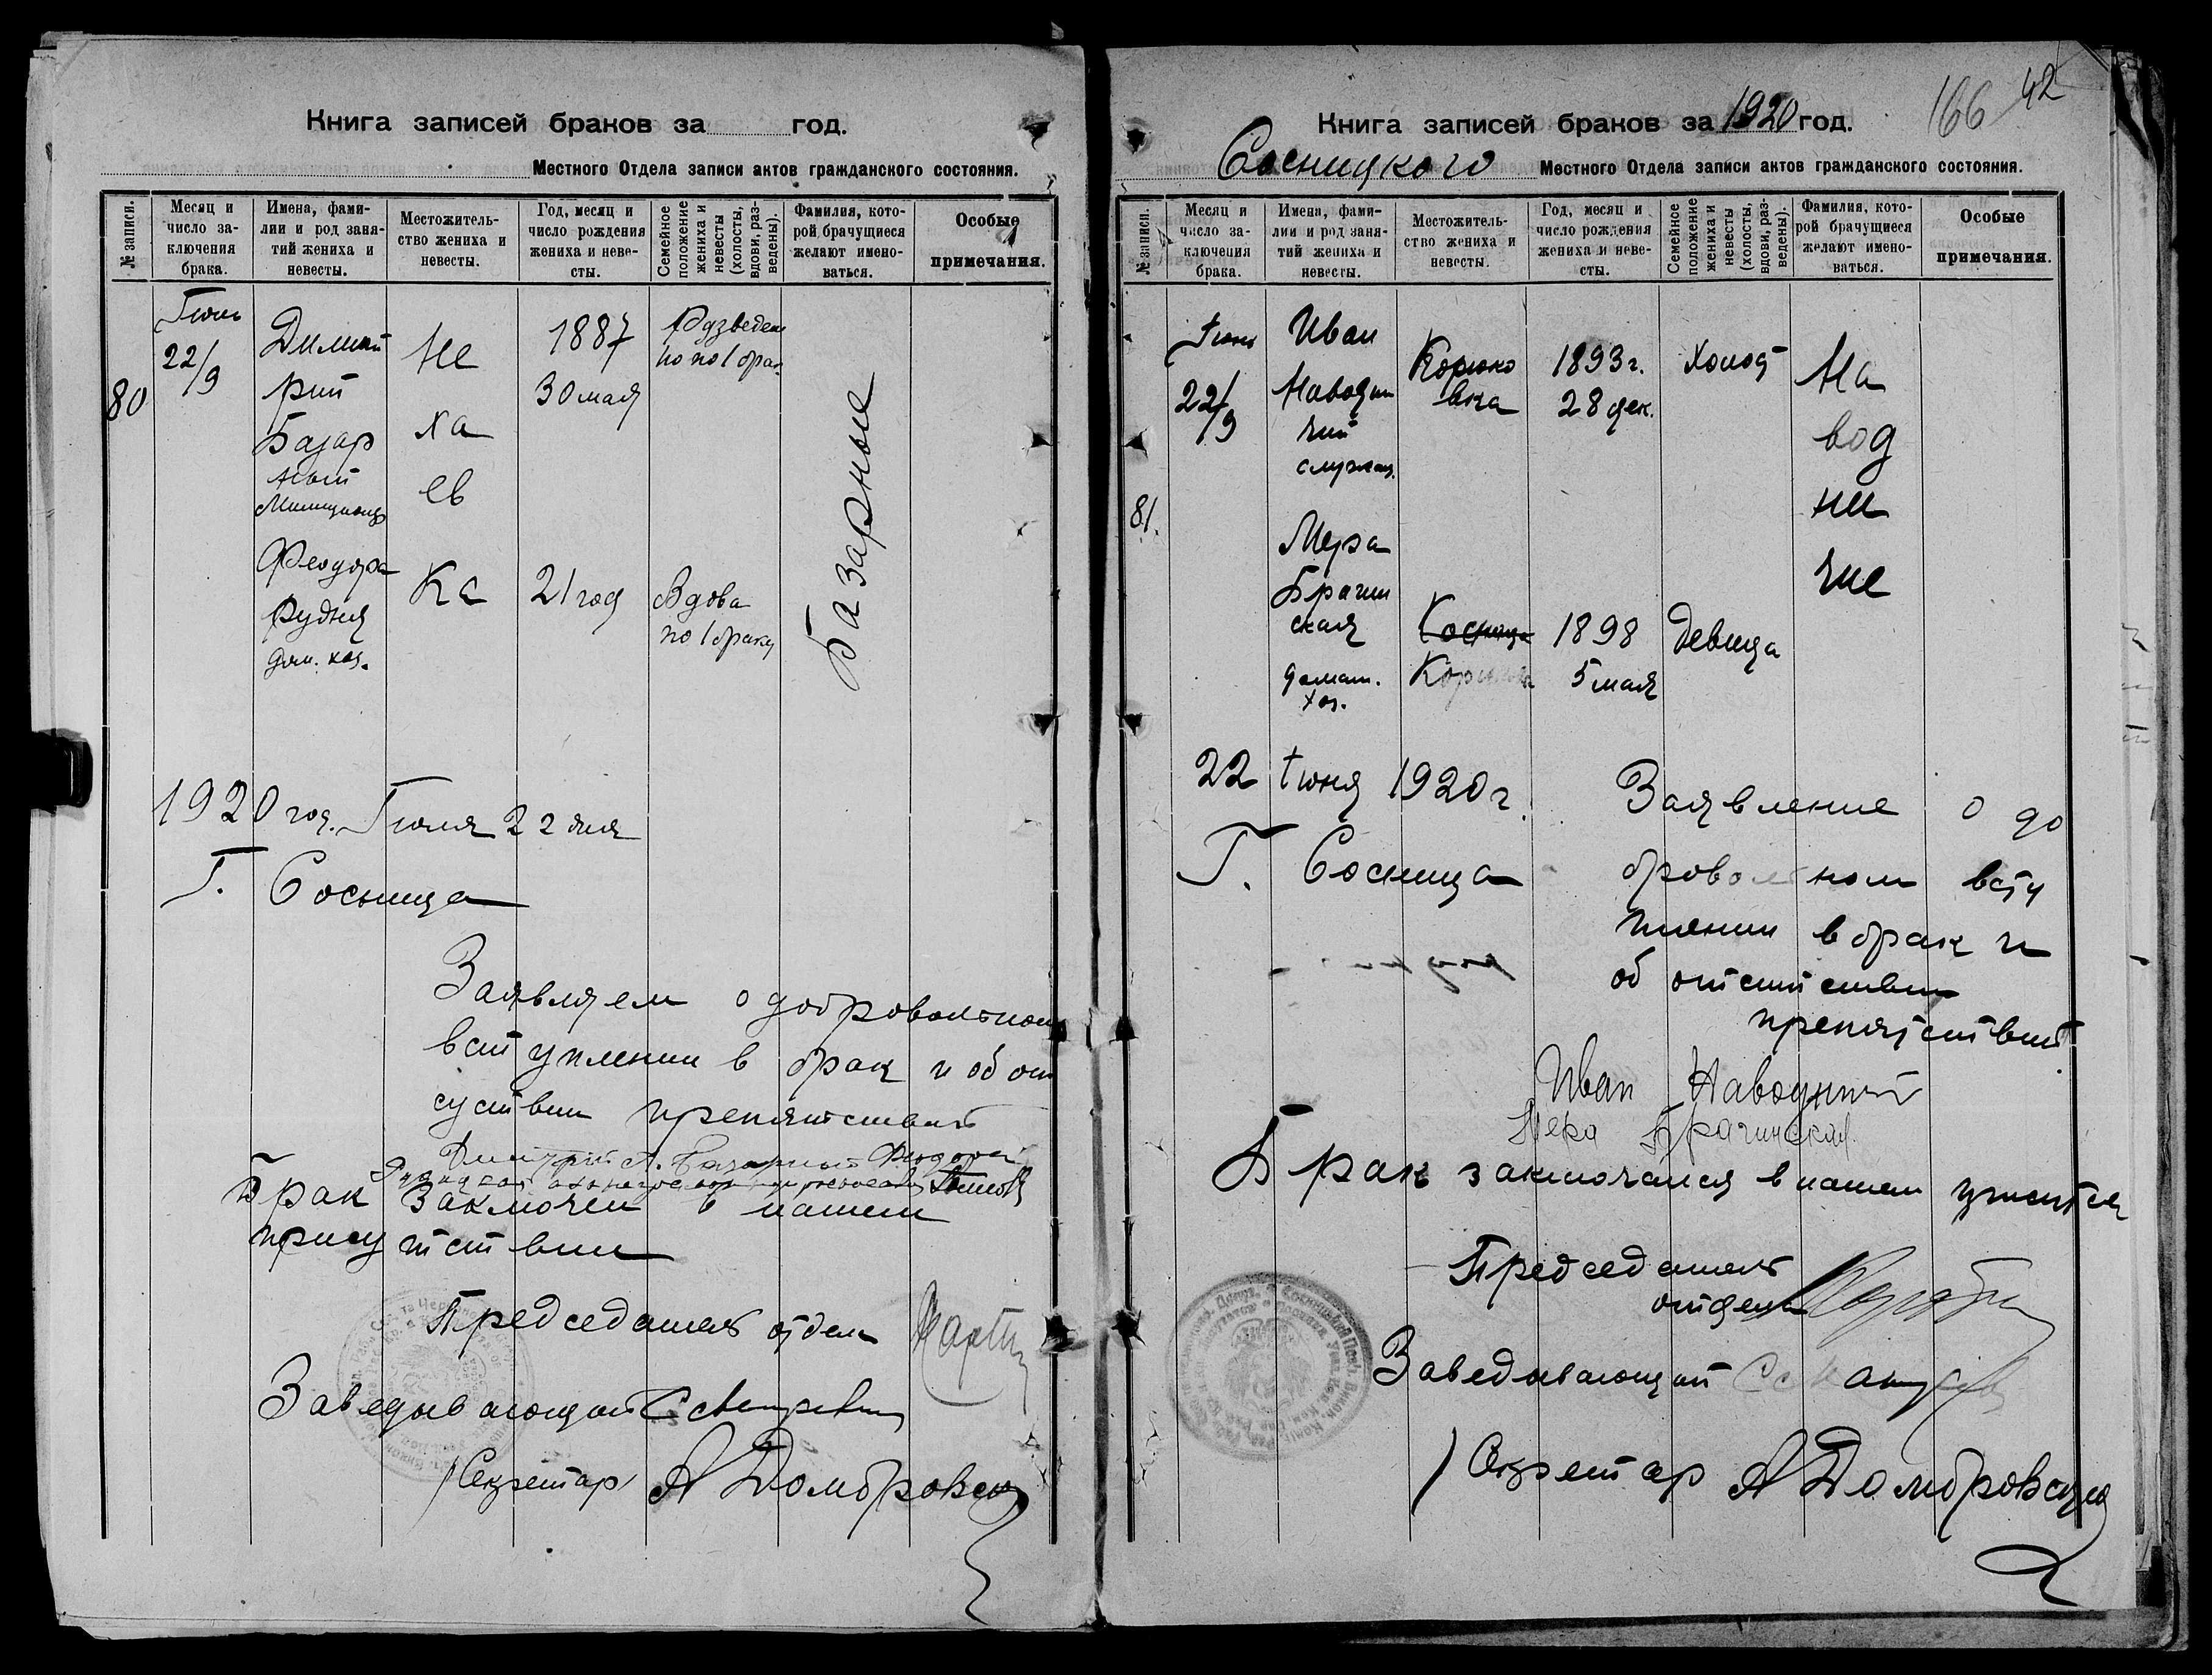 Книга записей браков за год.
Местного Отдела записи актов гражданского состояния.
№ записи.
Месяц и
число за-
ключения
брака.
Имена, фами-
лии и род заня-
тий жениха и
невесты.
Местожитель-
ство жениха и
невесты.
Год, месяц и
число рождения
жениха и неве-
сты.
Семейное
положение
жениха и
невесты
(холосты,
вдовы, раз-
ведены).
Фамилия, кото-
рой брачущиеся
желают имено-
ваться.
Особые
примечания.
80
22/9
Дмит
рий
Базар
ный
Не
ха
ев
ка
1887
30 мая
Разведен
по 1 брак
Феодора
Рудня
дом. хоз.
21 год
Вдова
по 1 браку
Базарные
1920 год. Июля 22 дня
Г. Сосница
Заявляем о добровольном
вступлении в брак и об от
сутствии препятствий
Брак заключен в нашем
присутствии
Председатель отдела
Заведывающий
Секретарь А Домбровский
166 42
Книга записей браков за 1920 год.
Сосницкого Местного Отдела записи актов гражданского состояния.
№ записи.
Месяц и
число за-
ключения
брака.
Имена, фами-
лии и род заня-
тий жениха и
невесты.
Местожитель-
ство жениха и
невесты.
Год, месяц и
число рождения
жениха и неве-
сты.
Семейное
положение
жениха и
невесты
(холосты,
вдовы, раз-
ведены).
Фамилия, кото-
рой брачущиеся
желают имено-
ваться.
Особые
примечания.
81.
22/9
Иван
Наводни
чий
служащ.
Корюко
вка
1893 г.
28 дек.
Холост
На
вод
ни
чие
Мера
Брагин
ская
домаш.
хоз.
Сосница
1898
5 мая
Девица
22 Июня 1920 г.
Г. Сосница
Заявление о до
бровольном всту
плении в брак и
об отсутствии
препятствий
Иван
Мера Брагинская
Брак заключался в нашем
Председатель
отдела
Заведывающий
Секретарь А Домбровский